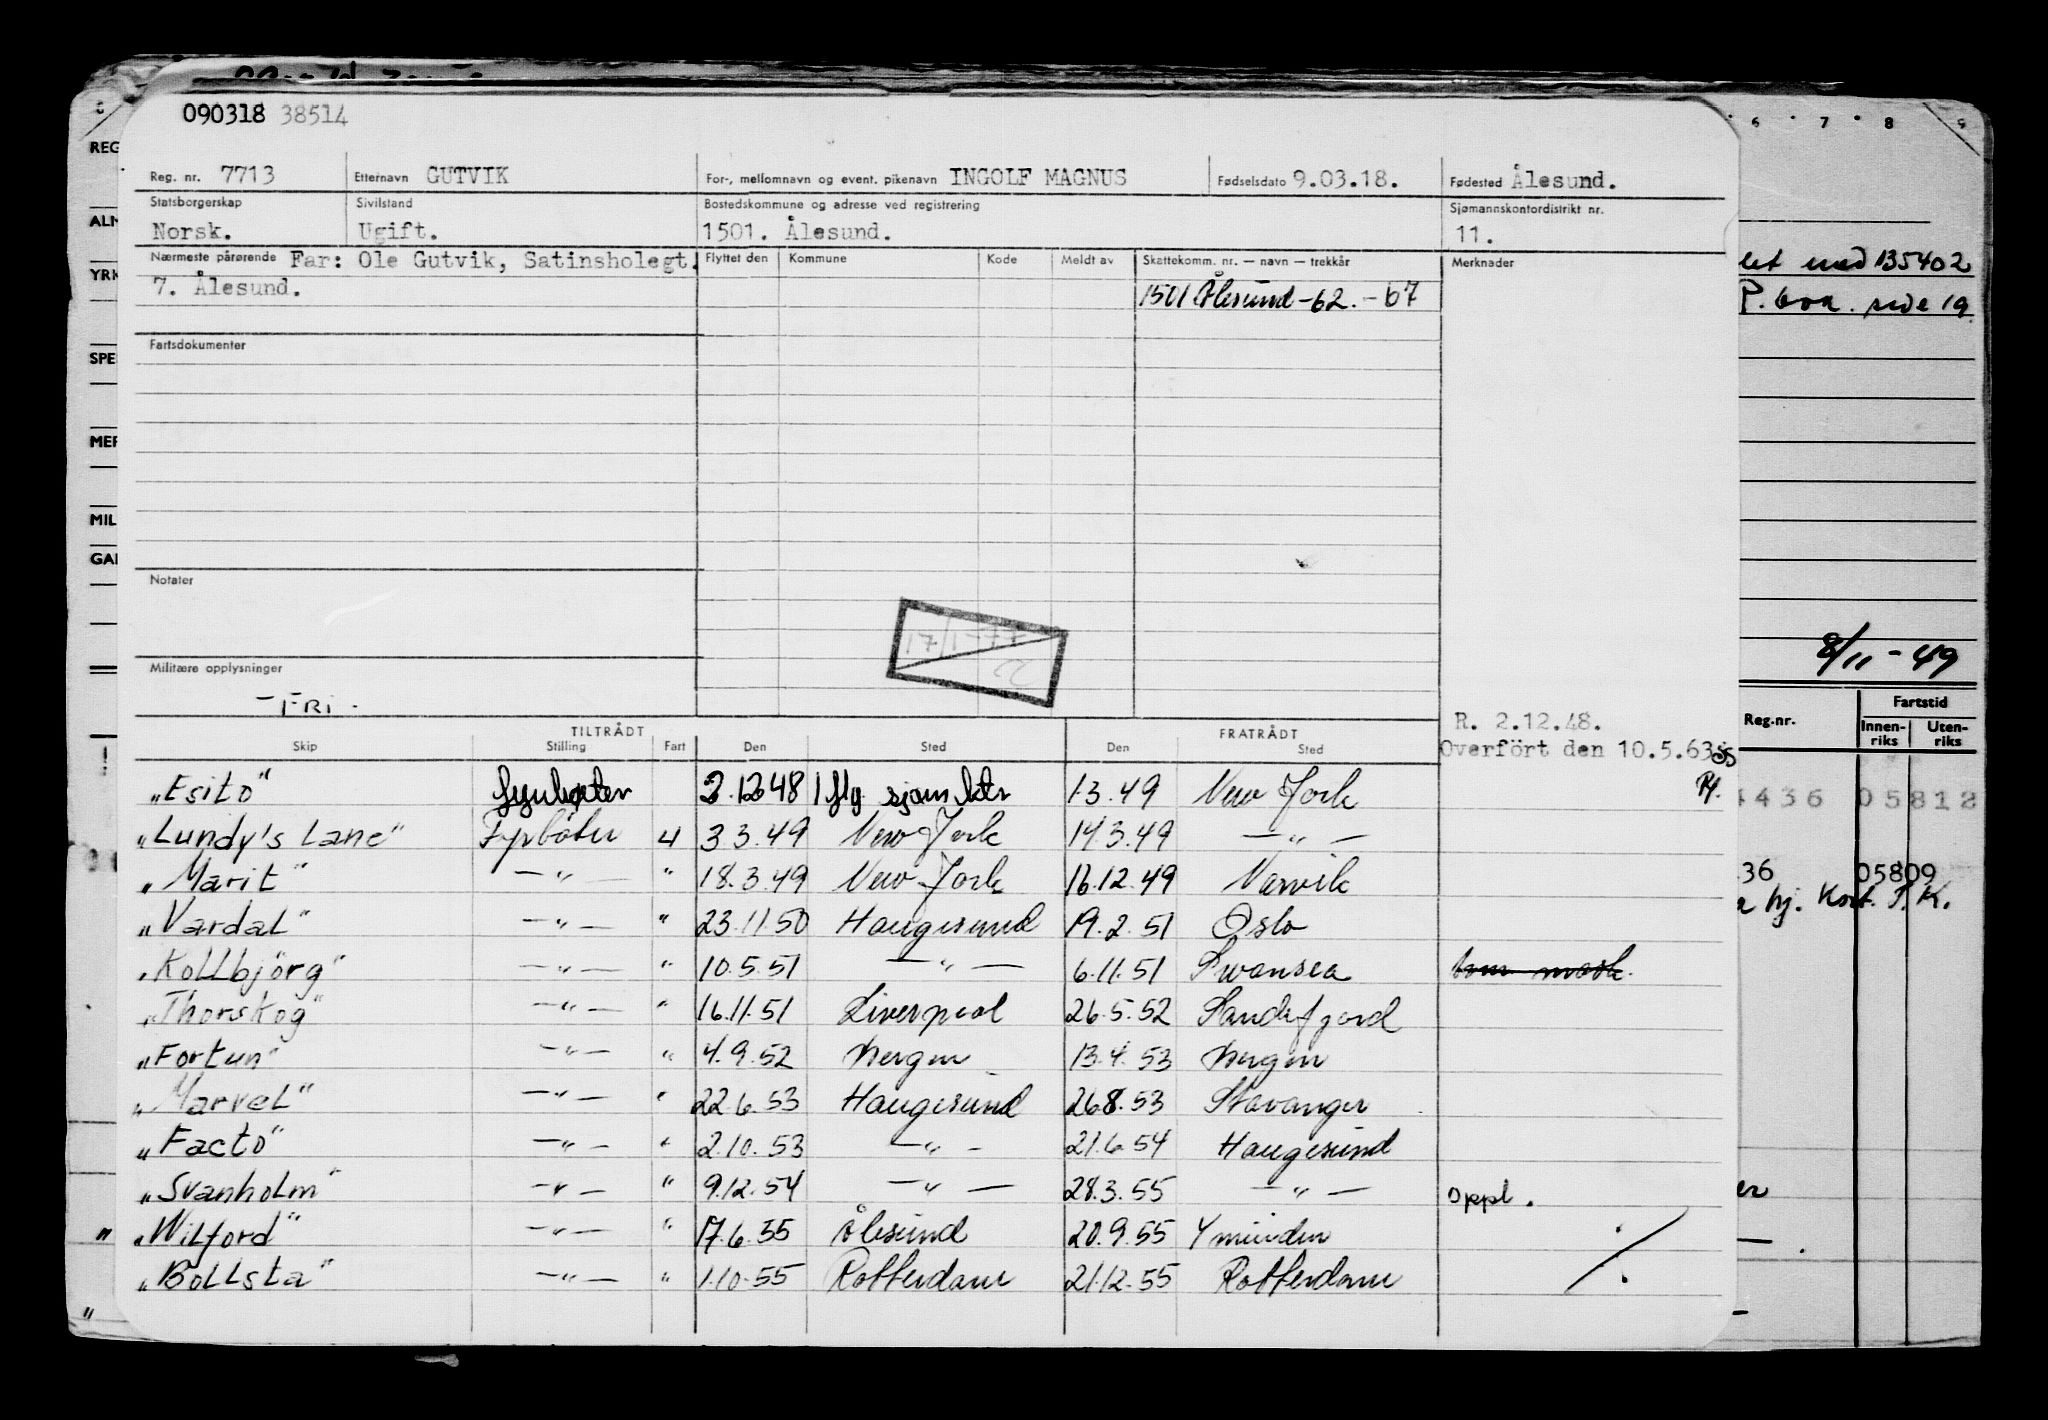 090318 38514
Reg. nr. 7713 Etternavn GUTVIK For-, mellomnavn og event. pikenavn INGOLF MAGNUS Fødselsdato 9.03.18. Fødested Ålesund.
Statsborgerskap Sivilstand Bostedskommune og adresse ved registrering Sjømannskontordistrikt nr.
Norsk. Ugift. 1501. Ålesund. 11.
Nærmeste pårørende Far: Ole Gutvik, Satinsholegt. Flyttet den Kommune Kode Meldt av Skattekomm. nr. — navn — trekkår Merknader
7. Ålesund. 1501 Ålesund -62. -67
Fartsdokumenter
Notater
17/1-77
Militære opplysninger
- FRI -
R. 2.12.48.
Overfört den 10.5.63
TILTRÅDT FRATRÅDT
Skip Stilling Fart Den Sted Den Sted
"Esito" fyrbøter 2.12 48 flg. sjøm ktr 1.3.49 New York
"Lundy's Lane" Fyrbøter 4 3 3.49 New York 14.3.49 — " —
"Marit" — " — " 18.3.49 New York 16.12.49 Narvik
"Vardal" — " — " 23.11.50 Haugesund 19.2.51 Oslo
"Kollbjörg" — " — " 10.5.51 — " — 6.11.51 Swansea
"Thorskog" — " — " 16.11.51 Liverpool 26.5.52 Sandefjord
"Fortun" — " — " 4.9.52 Bergen 13.4.53 Bergen
"Marvel" — " — " 22.6.53 Haugesund 26.8.53 Stavanger
"Facto" — " — " 2.10.53 — " — 21.6.54 Haugesund
"Svanholm" — " — " 9.12.54 — " — 28.3.55 — " — oppl.
"Wilford" — " — " 17.6.55 Ålesund 20.9.55 Ymuiden
"Bollsta" — " — " 1.10.55 Rotterdam 21.12.55 Rotterdam
REG
ALM
YRK
SPE
MER
MIL
GAR
6 7 8 9
med 135402
side 19
8/11 - 49
Reg.nr. Fartstid
Innen-riks Uten-riks
4436 05812
36 05809
hj. Kort. T.K.